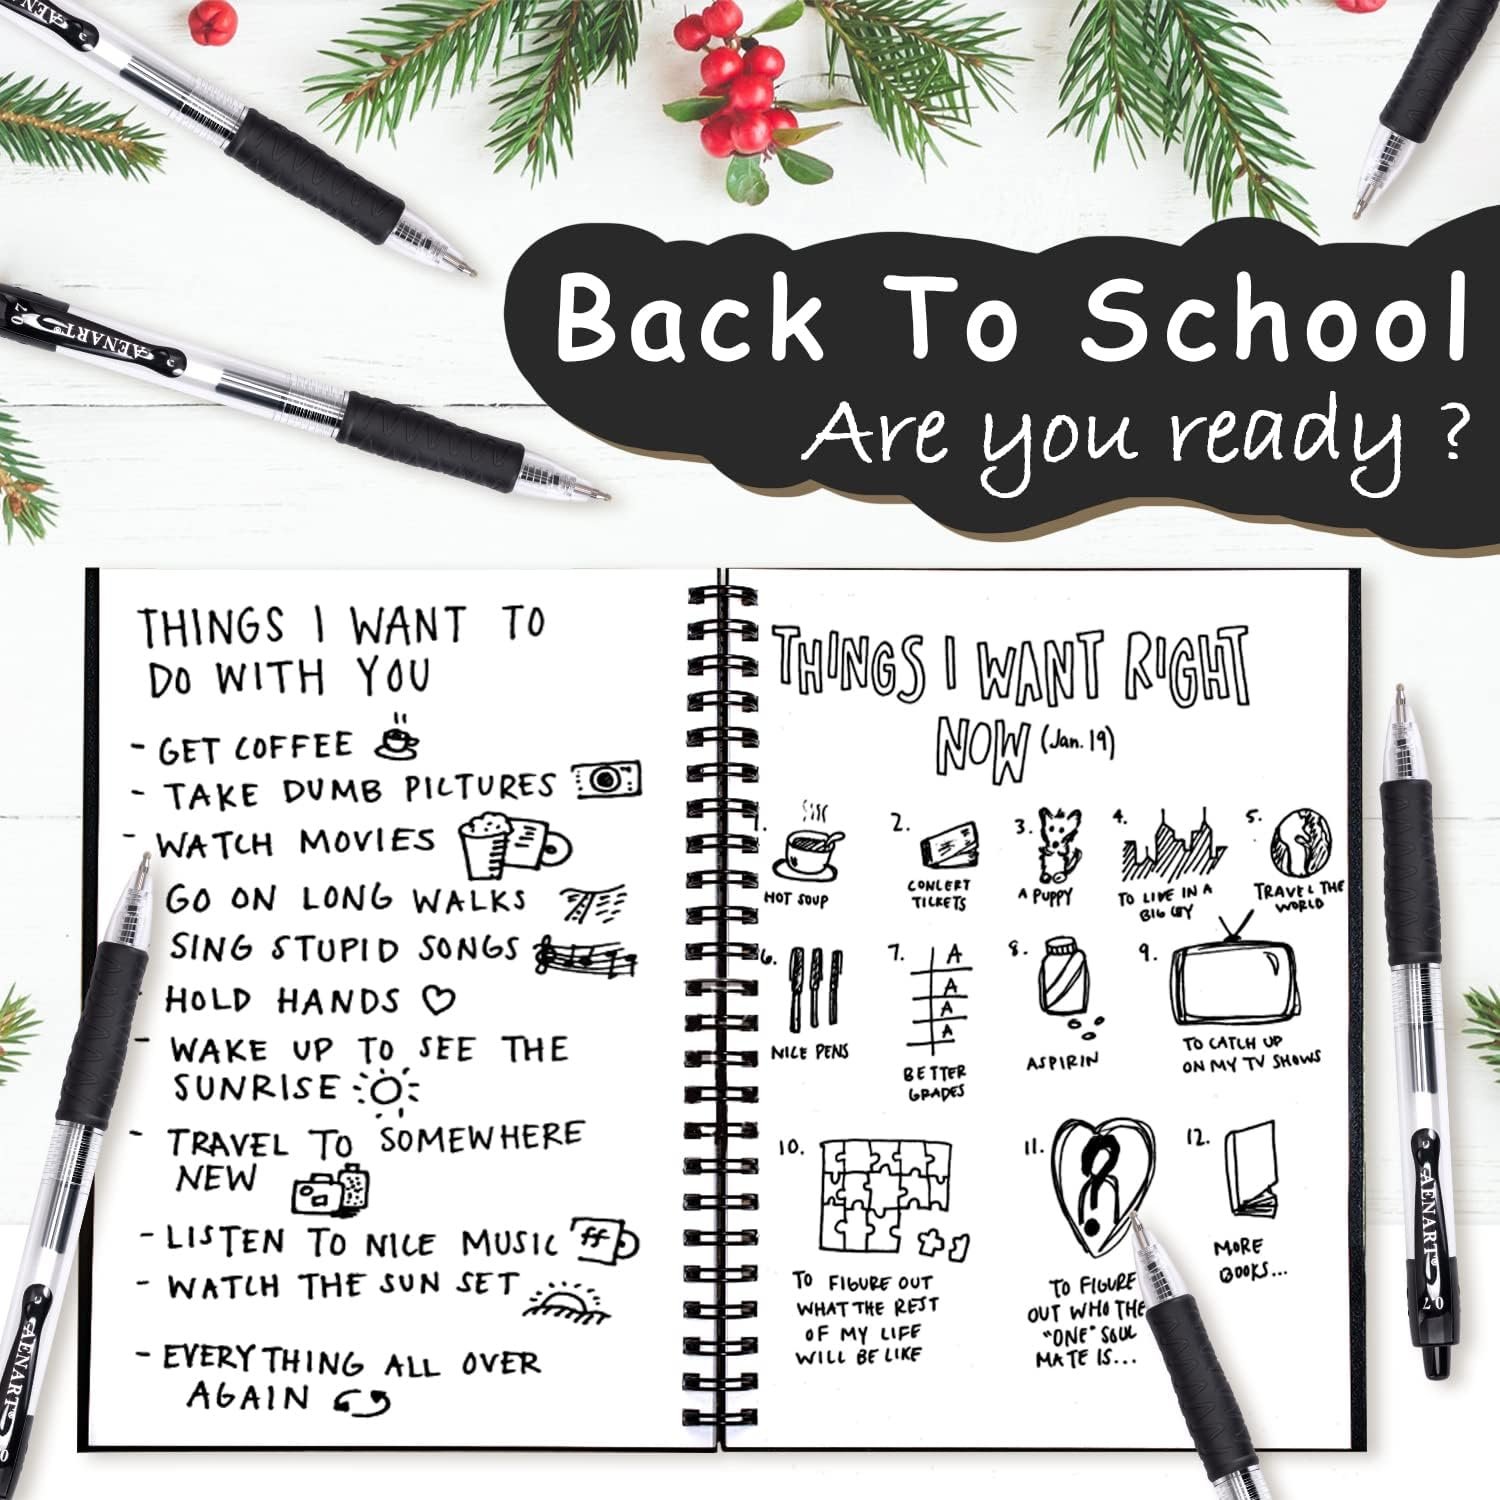 AENART
Back To School
0.7
AENART
Are you ready ?
THINGS I WANT TO
DO WITH YOU
- GET COFFEE
- TAKE DUMB PICTURES
- WATCH MOVIES
GO ON LONG WALKS
SING STUPID SONGS
HOLD HANDS
- WAKE UP TO SEE THE
SUNRISE
- TRAVEL TO SOMEWHERE
NEW
- LISTEN TO NICE MUSIC
ff
- WATCH THE SUN SET
- EVERYTHING ALL OVER
AGAIN
THINGS I WANT RIGHT
NOW (Jan. 19)
1.
HOT SOUP
2.
CONCERT
TICKETS
3.
A PUPPY
4.
TO LIVE IN A
BIG CITY
5.
TRAVEL THE
WORLD
6.
NICE PENS
7.
A
A
A
A
BETTER
GRADES
8.
ASPIRIN
9.
TO CATCH UP
ON MY TV SHOWS
10.
TO FIGURE OUT
WHAT THE REST
OF MY LIFE
WILL BE LIKE
11.
?
TO FIGURE
OUT WHO THE
"ONE" SOUL
MATE IS...
12.
MORE
BOOKS...
AENART
0.7
AENART
0